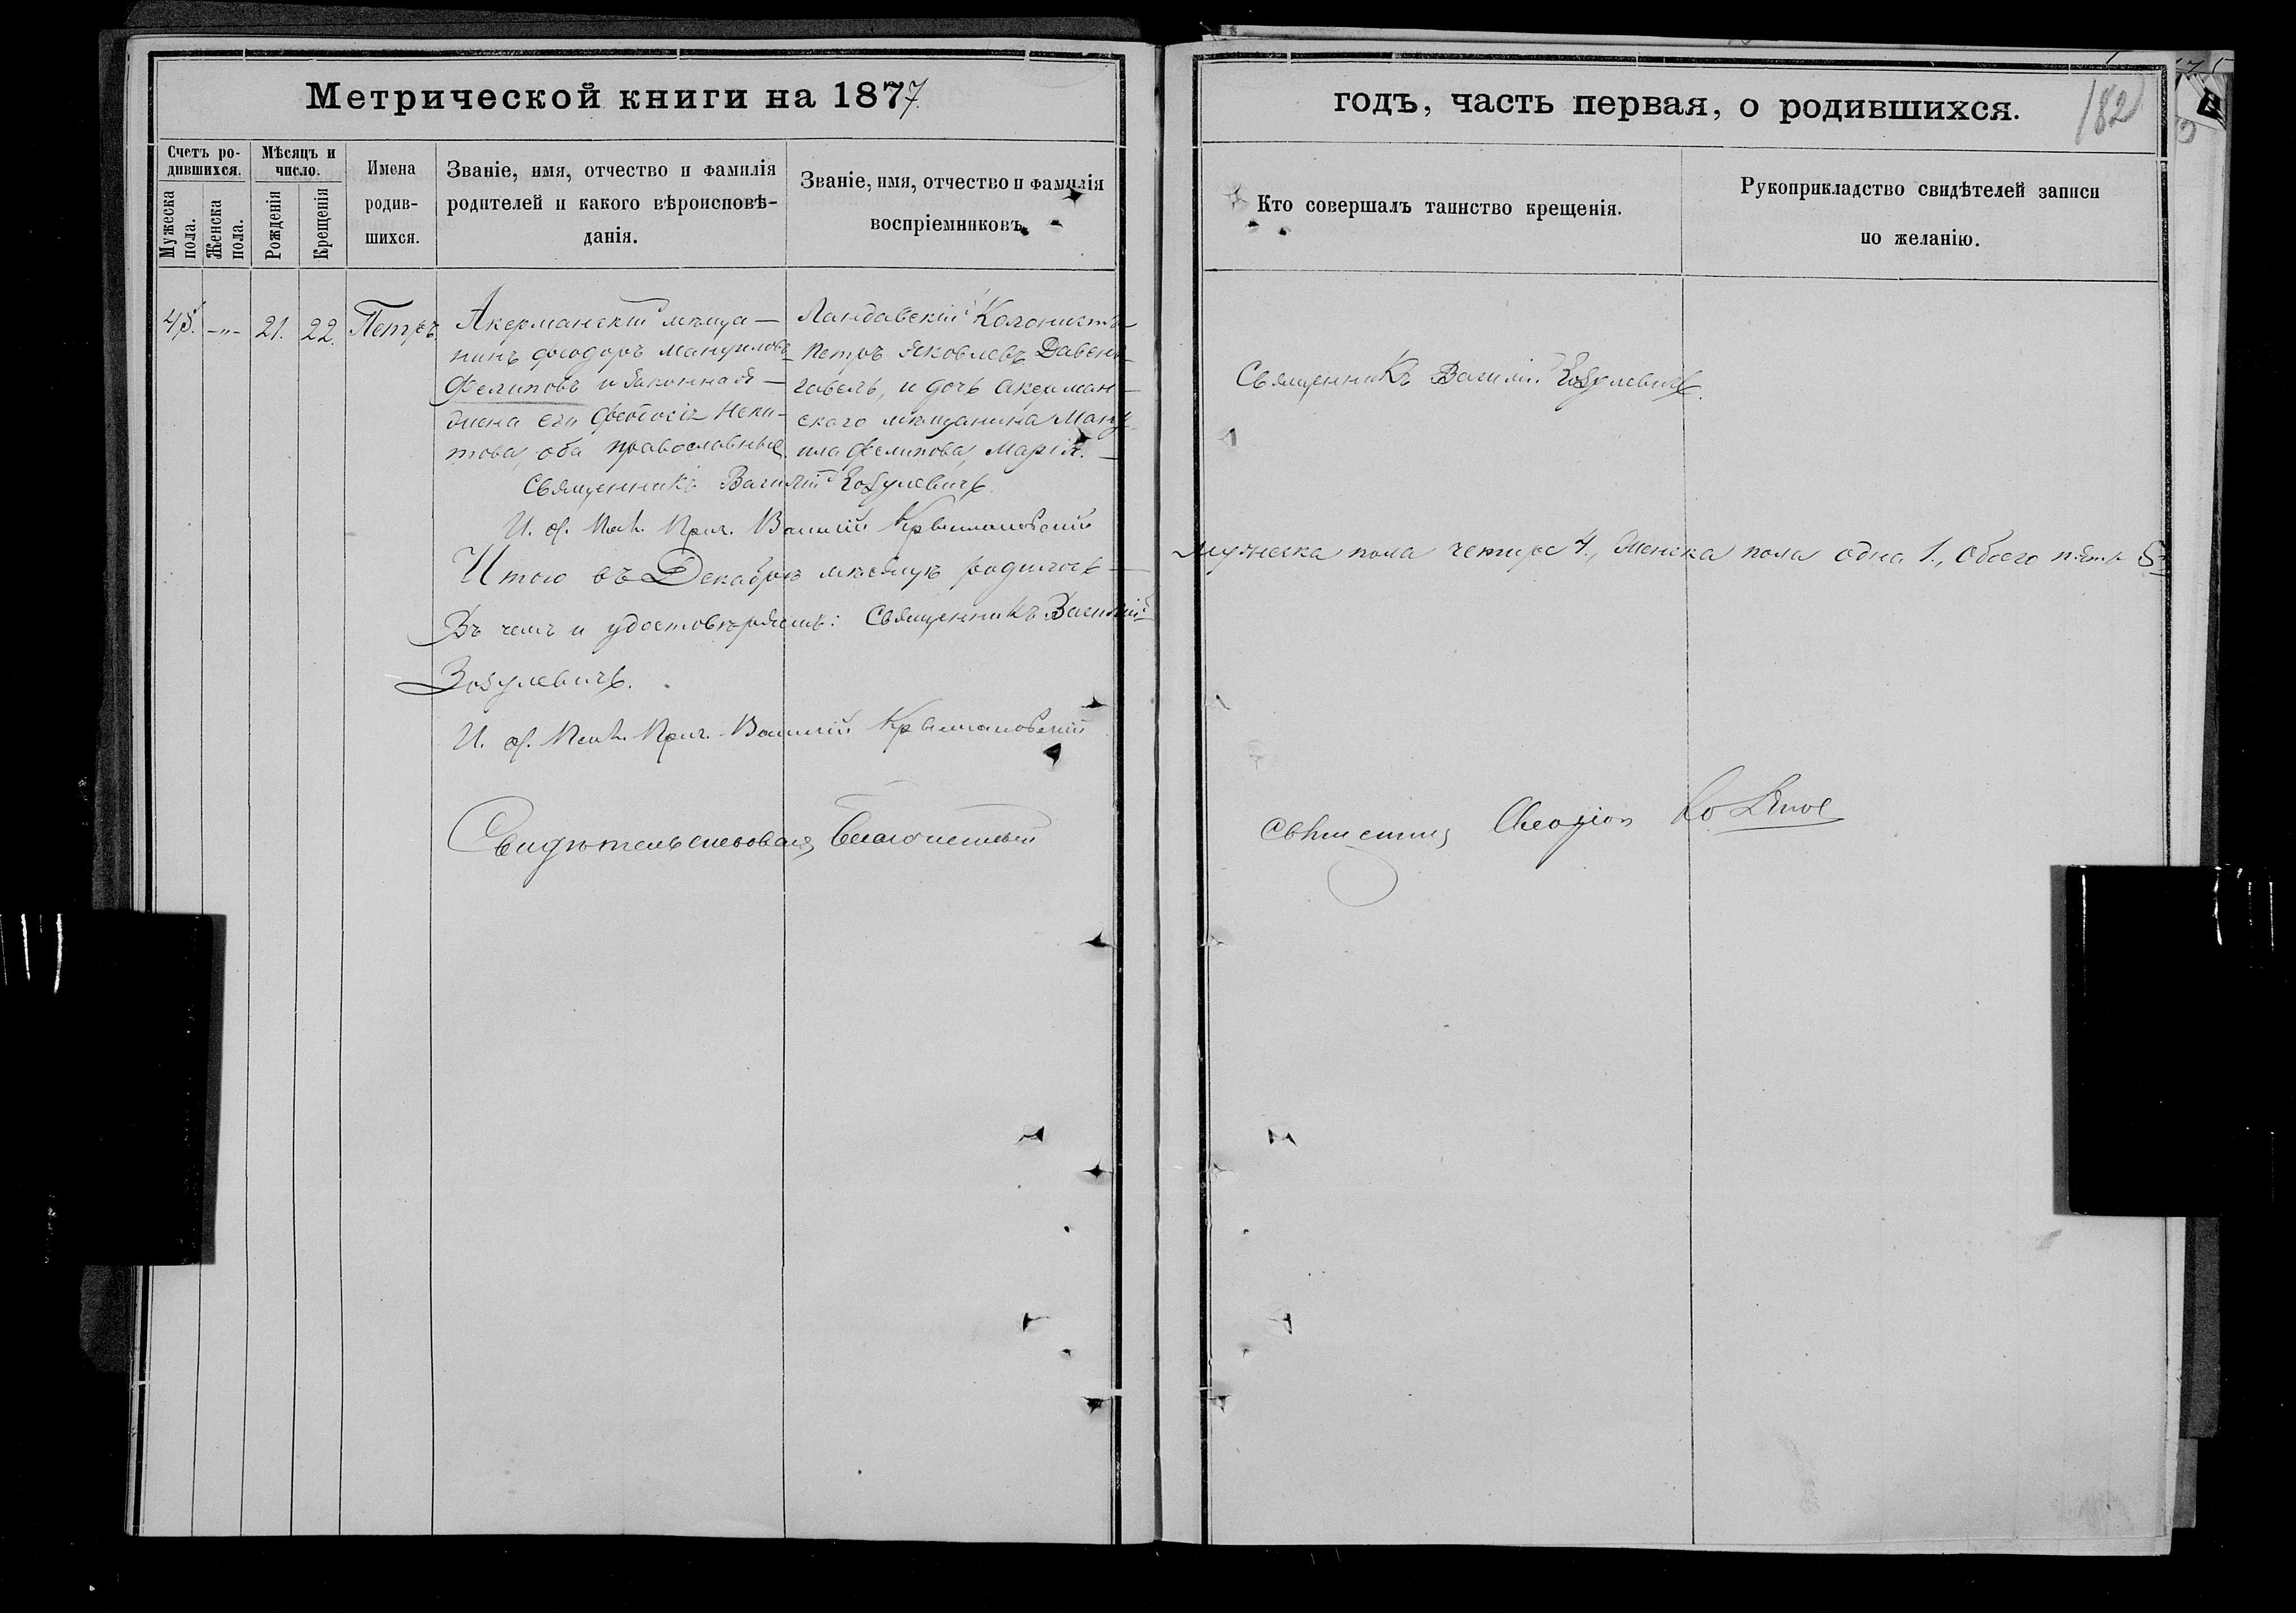 Метрической книги на 1877.
годъ, часть первая, о родившихся.
182
Счетъ ро-
дившихся.
Мужеска
пола.
Женска
пола.
Мѣсяцъ и
число.
Рожденія
Крещенія
Имена
родив-
шихся.
Званіе, имя, отчество и фамилія
родителей и какого вѣроисповѣ-
данія.
Званіе, имя, отчество и фамилія
воспріемниковъ.
Кто совершалъ таинство крещенія.
Рукоприкладство свидѣтелей записи
по желанію.
45.
-„-
21.
22.
Петръ.
Акерманскій мѣща-
нинъ Ѳеодоръ Мануиловъ
Филиповъ и законная
жена его Ѳеодосія Ники-
това, оба православные.
Ландавскій Колонистъ
Петръ Яковлевъ
и дочь Акерман-
ского мѣщанина Ману-
ила Филипова, Марія.
Священникъ Василій Зозулевичъ.
Священникъ Василій Зозулевичъ.
И. д. Прич. Василій Крыжановскій
Итого въ Декабрѣ мѣсяцѣ родилось
мужеска пола четыре 4., женска пола одна 1., обоего пять 5.
Въ чемъ и удостовѣряемъ: Священникъ Василій
Зозулевичъ.
И. д. Прич. Василій Крыжановскій
Свидѣтельствовалъ Благочинный